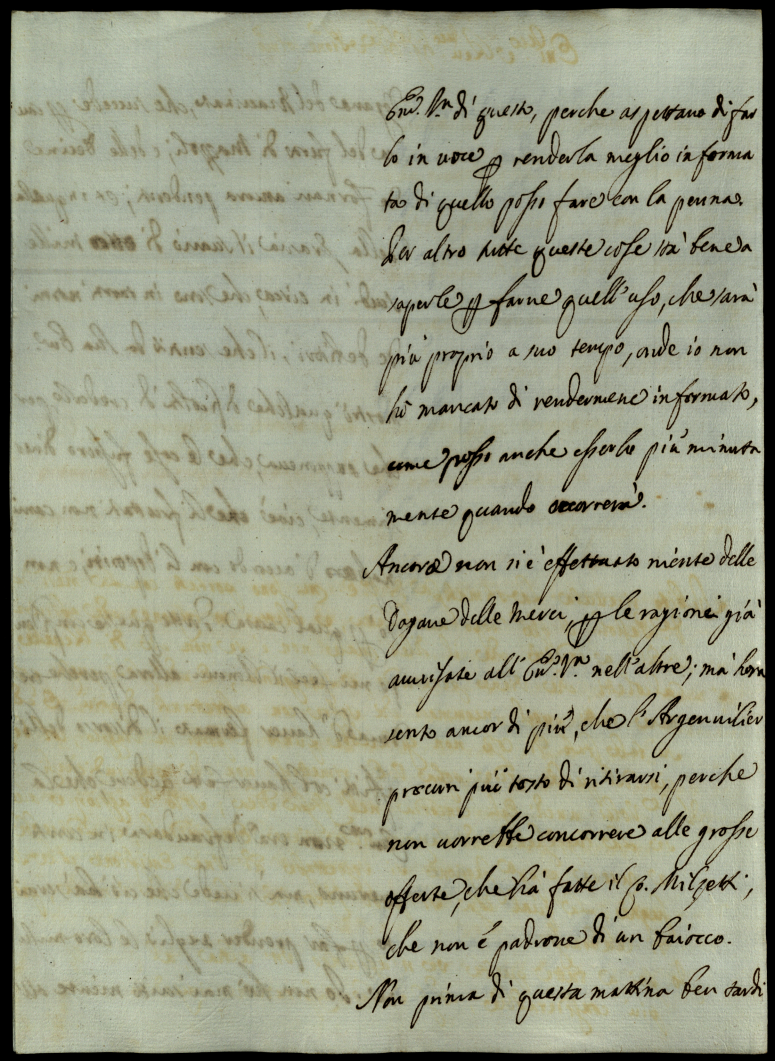 Em.ª V.ra di questo, perche aspettavo di far
lo in voce p renderla meglio informa
ta di quello posso fare con la penna.
Per altro tutte queste cose stà bene a
saperle p farne quell'uso, che sarà
più proprio a suo tempo, onde io non
hò mancato di rendermene informato,
come posso anche esserlo più minuta
mente quando occorrerà.
Ancora non si è effettuato niente delle
Dogane delle Merci, p le ragioni già
avvisate all'Em.ª V.ra nell'altre; mà hora
sento ancor di più, che l'Argenvilier
procuri più tosto di ritirarsi, perche
non vorrebbe concorrere alle grosse
offerte, che hà fatte il Co. Milzetti,
che non è padrone di un baiocco.
Non prima di questa mattina ben tardi